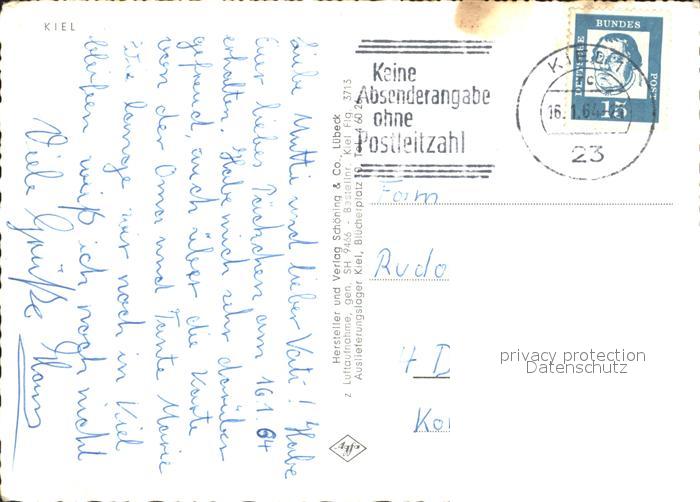 KIEL
Keine
Absenderangabe
ohne
Postleitzahl
KIEL
16.1.64
23
DEUTSCHE
BUNDES
POST
15
Liebe Mutti und lieber Vati! Habe
Euer liebes Päckchen am 16.1.64
erhalten. Habe mich sehr darüber
gefreut, auch über die Karte
von der Oma und Tante Marie
Wie lange wir noch in Kiel
bleiben weiß ich noch nicht
Viele Grüße Hans
Hersteller und Verlag Schöning & Co., Lübeck
z Luftaufnahme, gen. SH 9466 - Bestellnr. Kiel Flg 3713
Auslieferungslager Kiel, Blücherplatz Tel. 4 60 26
Fam
Rudo
4 D
Ko
privacy protection
Datenschutz